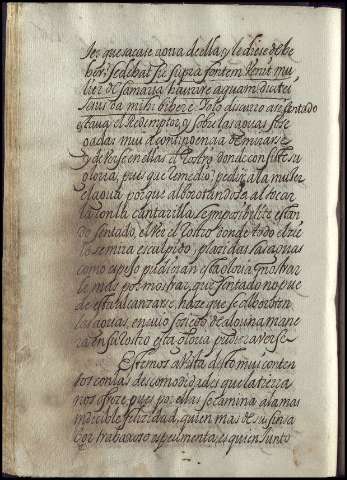 ger que sacase agua de ella, y le diese de be
ber: sedebat sic supra fontem Venit mu
lier de Samaria haurire aquam dicit ei
Iesus da mihi bibere Yo lo discurro asi sentado
estaua el Redemptor, y sobre las aguas sose
gadas mui a contingencia de mirarse
y de verse en ellas el rostro donde consiste su
gloria, pues que remedio? pedir a la muger
el agua porque alborotandose al tocar
la con la cantarilla se imposibilite estan
do sentado, el ver el rostro donde todo el cie
lo se mira esculpido, placidas las aguas
como espejo pudieran esta gloria mostrar
le mas por mostrar, que sentado no pue
de esta alcanzarse, haze que se alboroten
las aguas, en cuio sosiego de alguna mane
ra en su rostro esta gloria pudiera verse.
Estemos a vista desto mui conten
tos con las descomodidades que la tierra
nos ofreze pues por ellas se camina a la mas
indecible felicidad, quien mas
por trabaxoso experimenta, es quien junto